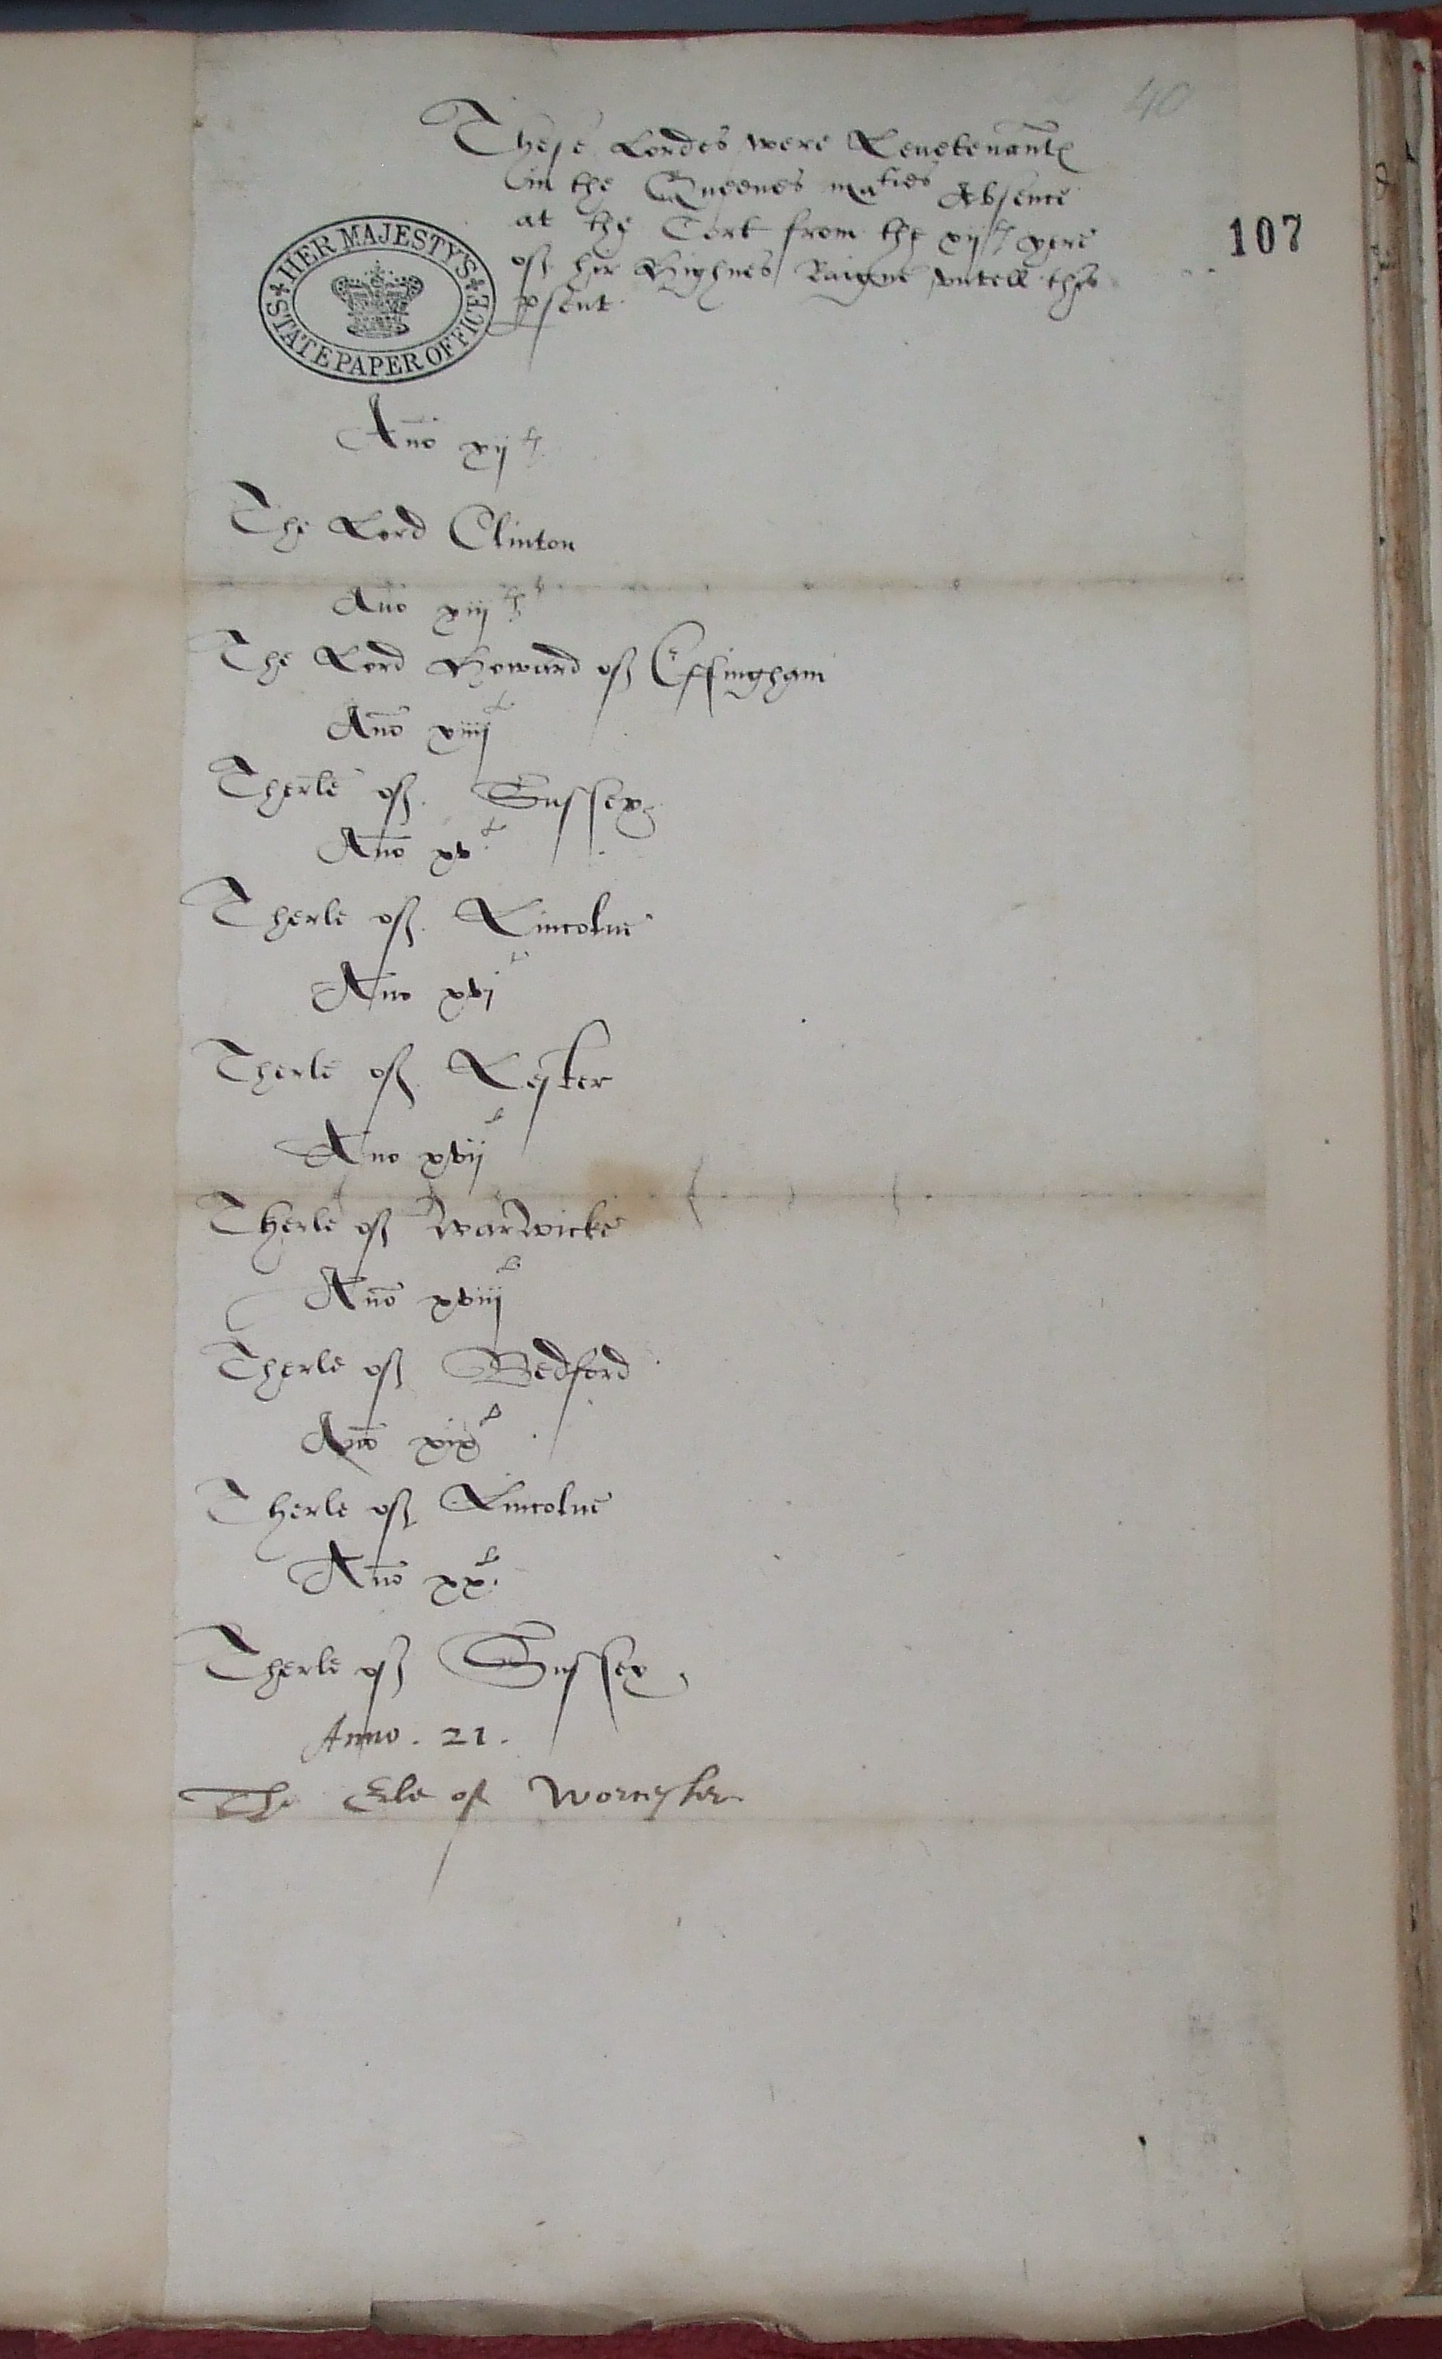 40
These Lordes were Leuetenantes
in the Queenes maties Absence
at the Cort from the xijth yere
of hir Highnes Raigne vntell this
psent
107
HER MAJESTY'S
STATE PAPER OFFICE
Ano xijth
The Lord Clinton
Ano xiijth
The Lord Howard of Effingham
Ano xiiijth
Therle of Sussex
Ano xvth
Therle of Lincolne
Ano xvj
Therle of Lester
Ano xvij
Therle of Warwicke
Ano xviij
Therle of Bedford
Ano xix
Therle of Lincolne
Ano xx
Therle of Sussex
Anno . 21 .
The Erle of Worcester